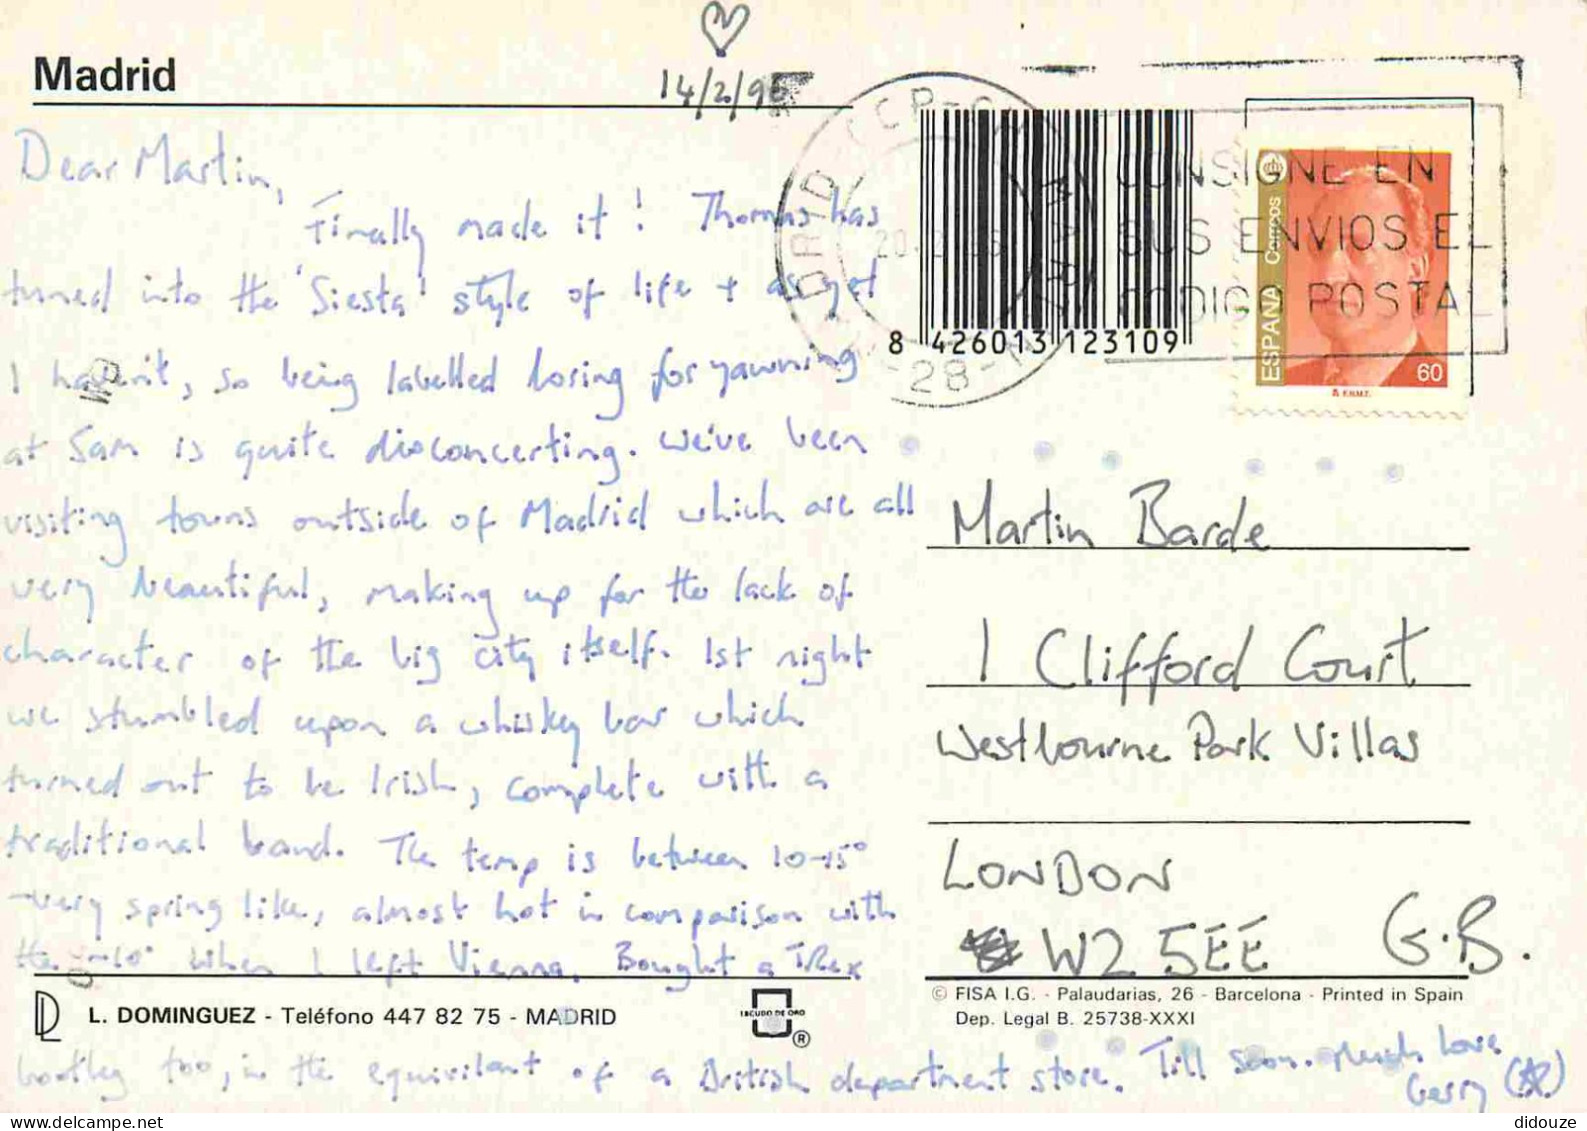 Madrid
14/2/96
Dear Martin,
Finally made it! Thomas has
turned into the 'Siesta' style of life + as yet
I haven't, so being labelled boring for yawning
at 5am is quite disconcerting. We've been
visiting towns outside of Madrid which are all
very beautiful, making up for the lack of
character of the big city itself. 1st night
we stumbled upon a whisky bar which
turned out to be Irish, complete with a
traditional band. The temp is between 10-15°
-very spring like, almost hot in comparison with
the -10° when I left Vienna. Bought a T.Rex
bootleg too, in the equivilant of a British department store. Till soon. Much love
Gerry
L. DOMINGUEZ - Teléfono 447 82 75 - MADRID
ESCUDO DE ORO
®
8 426013 123109
CONSIGNE EN
SUS ENVIOS EL
CODIGO POSTAL
ESPAÑA Correos
60
F.N.M.T.
Martin Barde
1 Clifford Court
Westbourne Park Villas
LONDON
W2 5EE G.B.
© FISA I.G. - Palaudarias, 26 - Barcelona - Printed in Spain
Dep. Legal B. 25738-XXXI
didouze